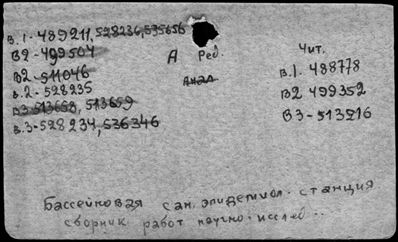 в.1-489211, 528236, 535656
В2-499504
В2-511046
в.2-528235
В3-513658, 513659
в.3-528234, 536346
А Ред.
Анал.
Чит.
в.1. 488778
В2 499352
В3-513216
Бассейновая сан. эпидемиол. станция
сборник работ научно-исслед...